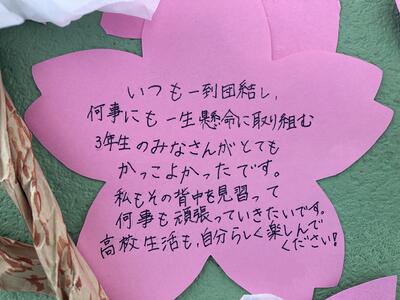 いつも一到団結し、
何事にも一生懸命に取り組む
3年生のみなさんがとても
かっこよかったです。
私もその背中を見習って
何事も頑張っていきたいです。
高校生活も、自分らしく楽しんで
ください!